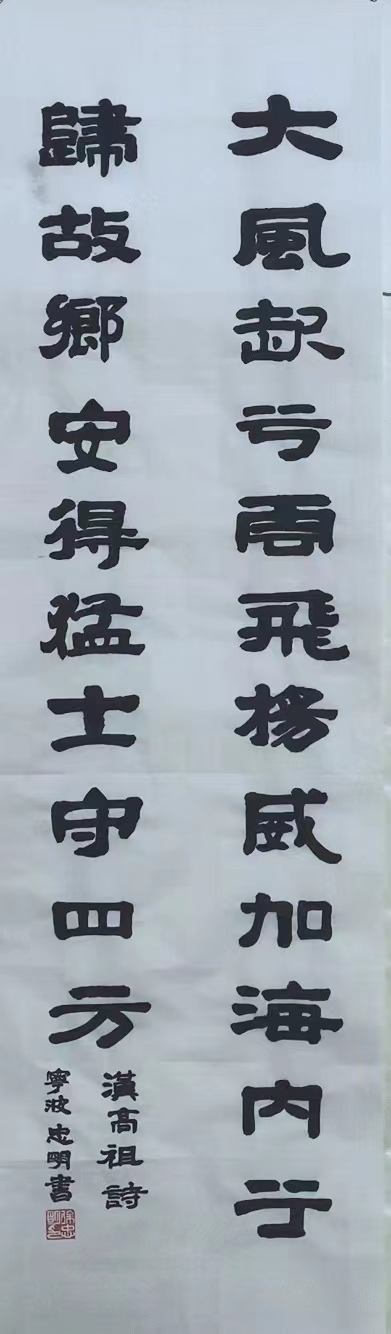 大風起兮雲飛楊威加海内兮
歸故鄉安得猛士守四方
漢高祖詩
寧波忠明書